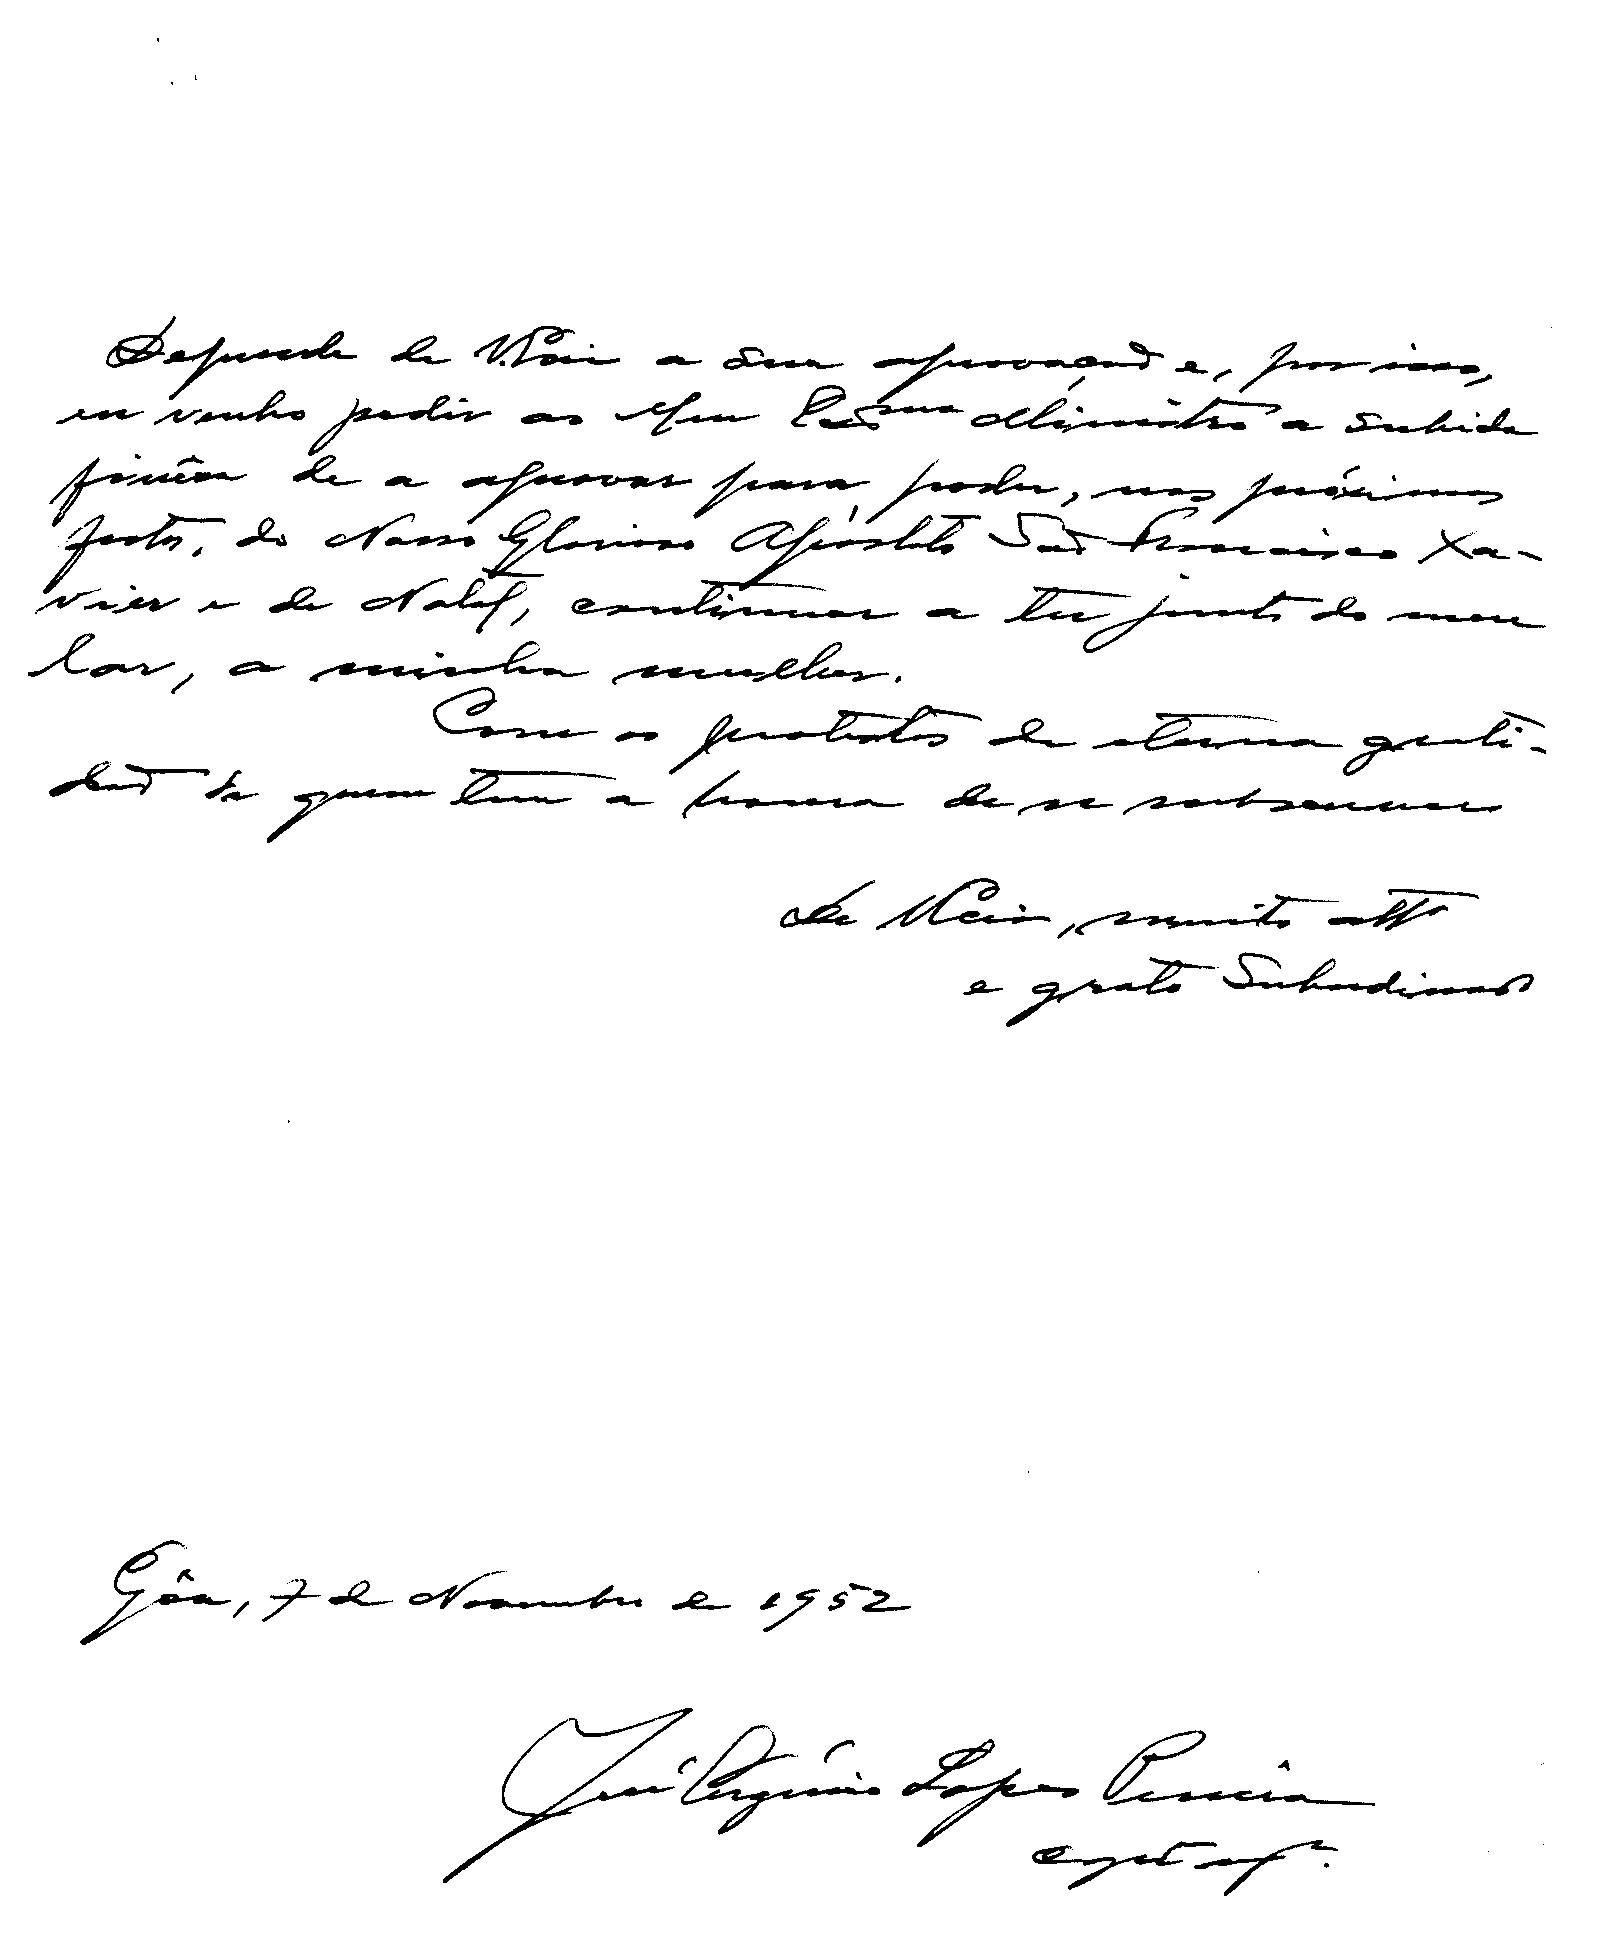 Depende de V. Excia a sua aprovação e, por isso,
eu venho pedir ao Meu Exmo Ministro a subida
fineza de a aprovar para poder, nas próximas
festas, do Nosso Glorioso Apóstolo São Francisco Xa-
vier e de Natal, continuar a ter junto do meu
lar, a minha mulher.
Com os protestos de eterna grati-
dão de quem tem a honra de se subscrever
De V. Excia, muito attº
e grato Subordinado
Gôa, 7 de Novembro de 1952
José Lopes Pereira